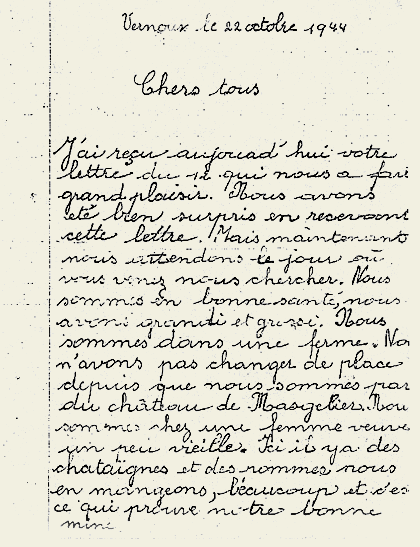 Vernoux le 22 octobre 1944
Chers tous
J'ai reçu aujourd'hui votre
lettre du 12 qui nous a fait
grand plaisir. Nous avons
été bien surpris en recevant
cette lettre. Mais maintenant
nous attendons le jour où
vous venez nous chercher. Nous
sommes en bonne santé, nous
avons grandi et grossi. Nous
sommes dans une ferme. No
n'avons pas changer de place
depuis que nous sommes par
du château de Masgelier. Nou
sommes chez une femme veuve
un peu vieille. Ici il y a des
chataîgnes et des pommes nous
en mangeons, beaucoup et c'es
ce qui prouve notre bonne
mine